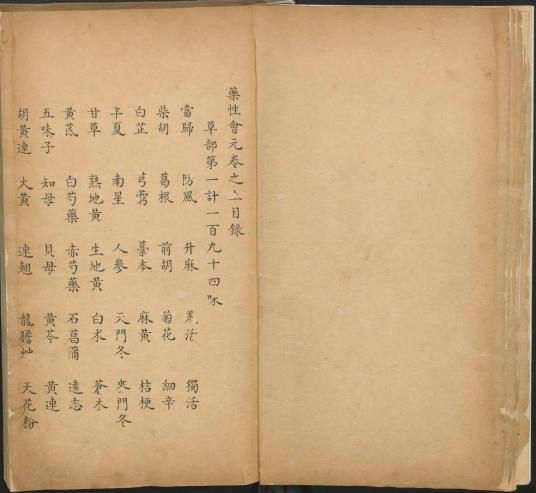 藥性會元卷之上目録
草部第一計一百九十四味
當歸 防風 升麻 羌活 獨活
柴胡 葛根 前胡 菊花 細辛
白芷 芎藭 藁本 麻黃 桔梗
半夏 南星 人參 天門冬 麥門冬
甘草 熟地黃 生地黃 白术 蒼术
黃芪 白芍藥 赤芍藥 石菖蒲 遠志
五味子 知母 貝母 黃芩 黃連
胡黃連 大黃 連翹 龍膽艸 天花粉